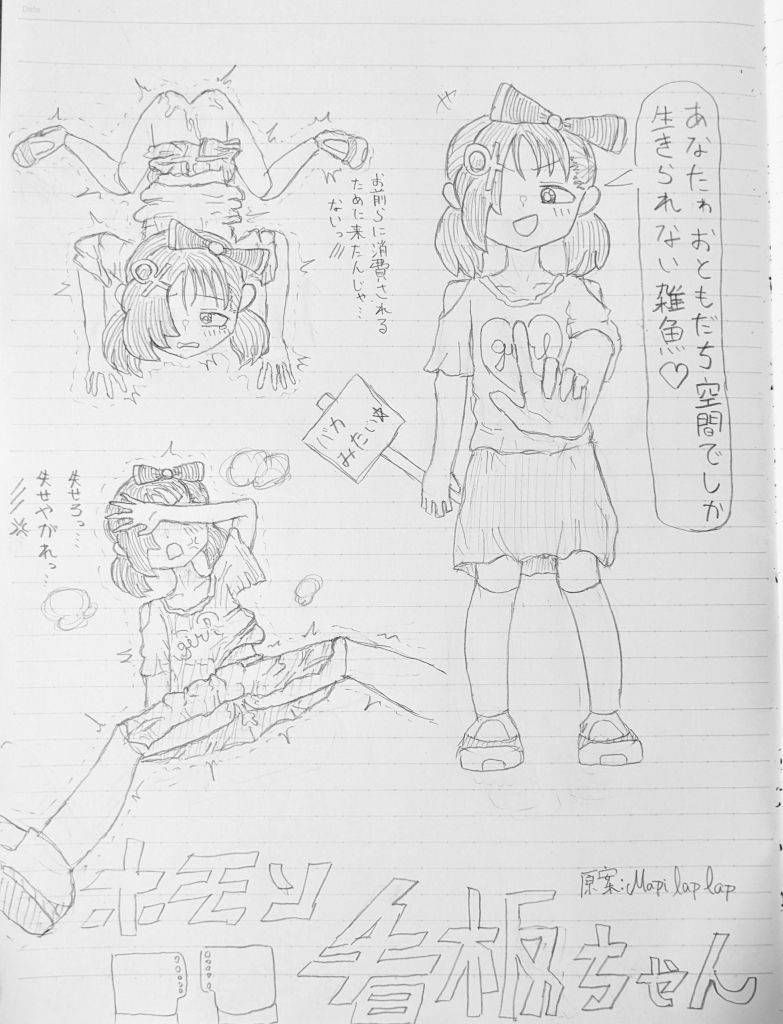 Date
あなたゎおともだち空間でしか
生きられない雑魚♡
お前らに消費される
ために来たんじゃ…
ないっ
バカ
みたい☆
girl
失せろっ…
失せやがれっ…
girl
ホモソ
看板ちゃん
原案:Mapi lap lap